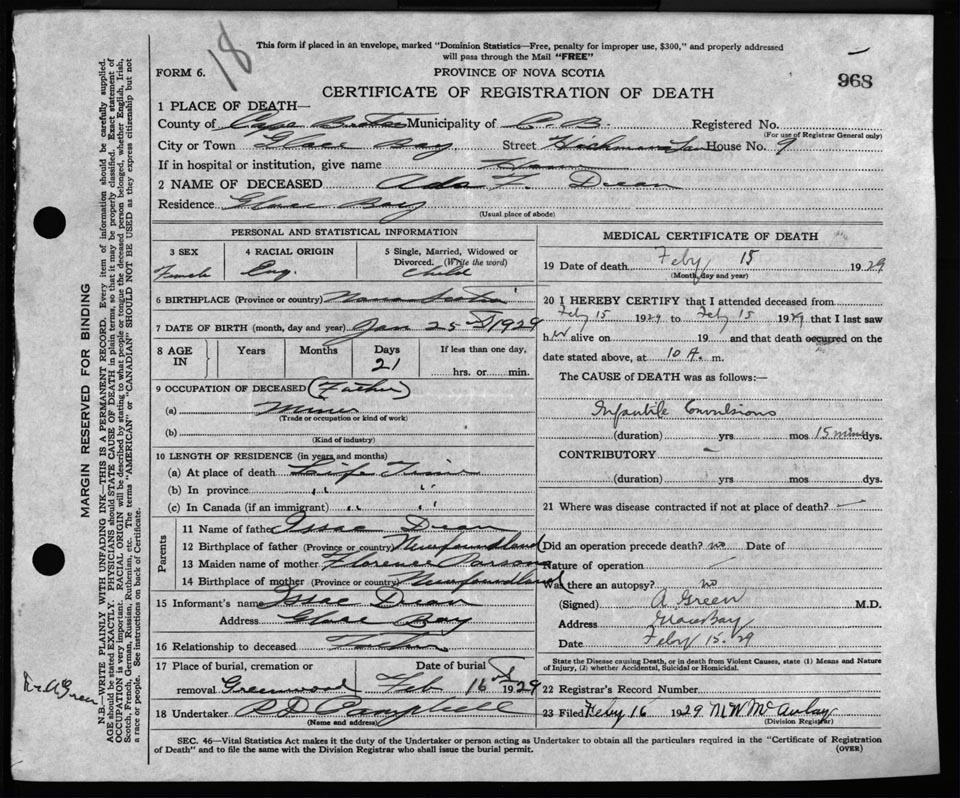 18
This form if placed in an envelope, marked "Dominion Statistics—Free, penalty for improper use, $300," and properly addressed
will pass through the Mail "FREE"
FORM 6.
PROVINCE OF NOVA SCOTIA
968
CERTIFICATE OF REGISTRATION OF DEATH
1 PLACE OF DEATH—
County of Cape Breton Municipality of C. B. Registered No.
(For use of Registrar General only)
City or Town Glace Bay Street House No. 9
If in hospital or institution, give name Home
2 NAME OF DECEASED Ada F. Dean
Residence Glace Bay
(Usual place of abode)
PERSONAL AND STATISTICAL INFORMATION
3 SEX 4 RACIAL ORIGIN 5 Single, Married, Widowed or
Divorced. (Write the word)
Female Eng. Child
6 BIRTHPLACE (Province or country) Nova Scotia
7 DATE OF BIRTH (month, day and year) Jan 25 1929
8 AGE IN Years Months Days If less than one day,
21 hrs. or min.
9 OCCUPATION OF DECEASED (Father)
(a) Miner
(Trade or occupation or kind of work)
(b)
(Kind of industry)
10 LENGTH OF RESIDENCE (in years and months)
(a) At place of death Life Time
(b) In province " "
(c) In Canada (if an immigrant) " "
Parents
11 Name of father Issac Dean
12 Birthplace of father (Province or country) Newfoundland
13 Maiden name of mother Florence Parsons
14 Birthplace of mother (Province or country) Newfoundland
15 Informant's name Issac Dean
Address Glace Bay
16 Relationship to deceased Father
17 Place of burial, cremation or Date of burial
removal Greenwood Feb 16 1929
18 Undertaker Campbell
(Name and address)
MEDICAL CERTIFICATE OF DEATH
19 Date of death Feby 15 1929
(Month, day and year)
20 I HEREBY CERTIFY that I attended deceased from
Feby 15 1929 to Feby 15 1929 that I last saw
her alive on 19 and that death occurred on the
date stated above, at 10 A. m.
The CAUSE of DEATH was as follows:—
Infantile Convulsions
(duration) yrs. mos 15 mins dys.
CONTRIBUTORY
(duration) yrs. mos. dys.
21 Where was disease contracted if not at place of death?
Did an operation precede death? no Date of
Nature of operation
Was there an autopsy? no
(Signed) A Green M.D.
Address Glace Bay
Date Feby 15. 29
State the Disease causing Death, or in death from Violent Causes, state (1) Means and Nature
of Injury, (2) whether Accidental, Suicidal or Homicidal.
22 Registrar's Record Number
23 Filed Feby 16 1929 M W McAulay
(Division Registrar)
SEC. 46—Vital Statistics Act makes it the duty of the Undertaker or person acting as Undertaker to obtain all the particulars required in the "Certificate of Registration
of Death" and to file the same with the Division Registrar who shall issue the burial permit. (OVER)
MARGIN RESERVED FOR BINDING
N.B.—WRITE PLAINLY WITH UNFADING INK—THIS IS A PERMANENT RECORD. Every item of information should be carefully supplied.
AGE should be stated EXACTLY. PHYSICIANS should STATE CAUSE OF DEATH in plain terms, so that it may be properly classified. Exact statement of
OCCUPATION is very important. RACIAL ORIGIN will be described by stating to what people or tongue the deceased person belonged, whether English, Irish,
Scotch, French, German, Russian, Ruthenian, etc. The terms "AMERICAN" or "CANADIAN" SHOULD NOT BE USED as they express citizenship but not
a race or people. See instructions on back of Certificate.
Dr. A Green